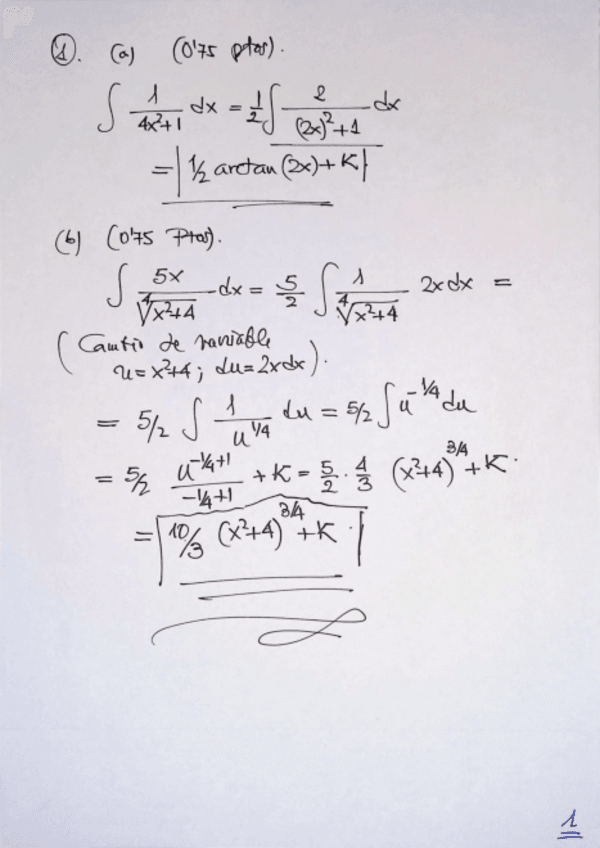 1. (a) (0'75 ptos).
∫ 1/(4x²+1) dx = 1/2 ∫ 2/((2x)²+1) dx
= 1/2 arctan(2x) + K
(b) (0'75 Ptos).
∫ 5x/∜(x²+4) dx = 5/2 ∫ 1/∜(x²+4) 2x dx =
(Cambio de variable
u = x²+4; du = 2x dx).
= 5/2 ∫ 1/u^(1/4) du = 5/2 ∫ u^(-1/4) du
= 5/2 u^(-1/4+1)/(-1/4+1) + K = 5/2 · 4/3 (x²+4)^(3/4) + K.
= 10/3 (x²+4)^(3/4) + K.
1